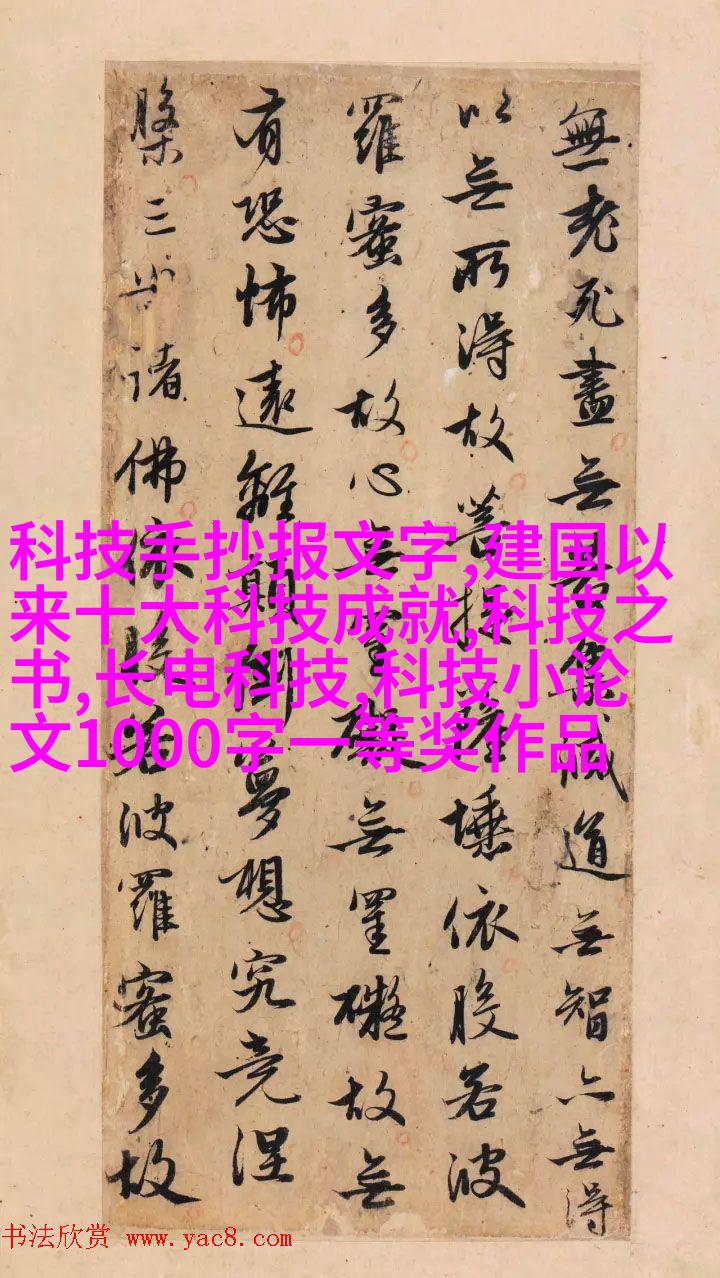 無老死盡無苦集滅道無智亦無得
以無所得故菩提薩埵依般若波
羅蜜多故心無罣礙無罣礙故無
有恐怖遠離顛倒夢想究竟涅
槃三世諸佛依般若波羅蜜多故
科技手抄报文字,建国以
来十大科技成就,科技之
书,长电科技,科技小论
文1000字一等奖作品
书法欣赏 www.yac8.com